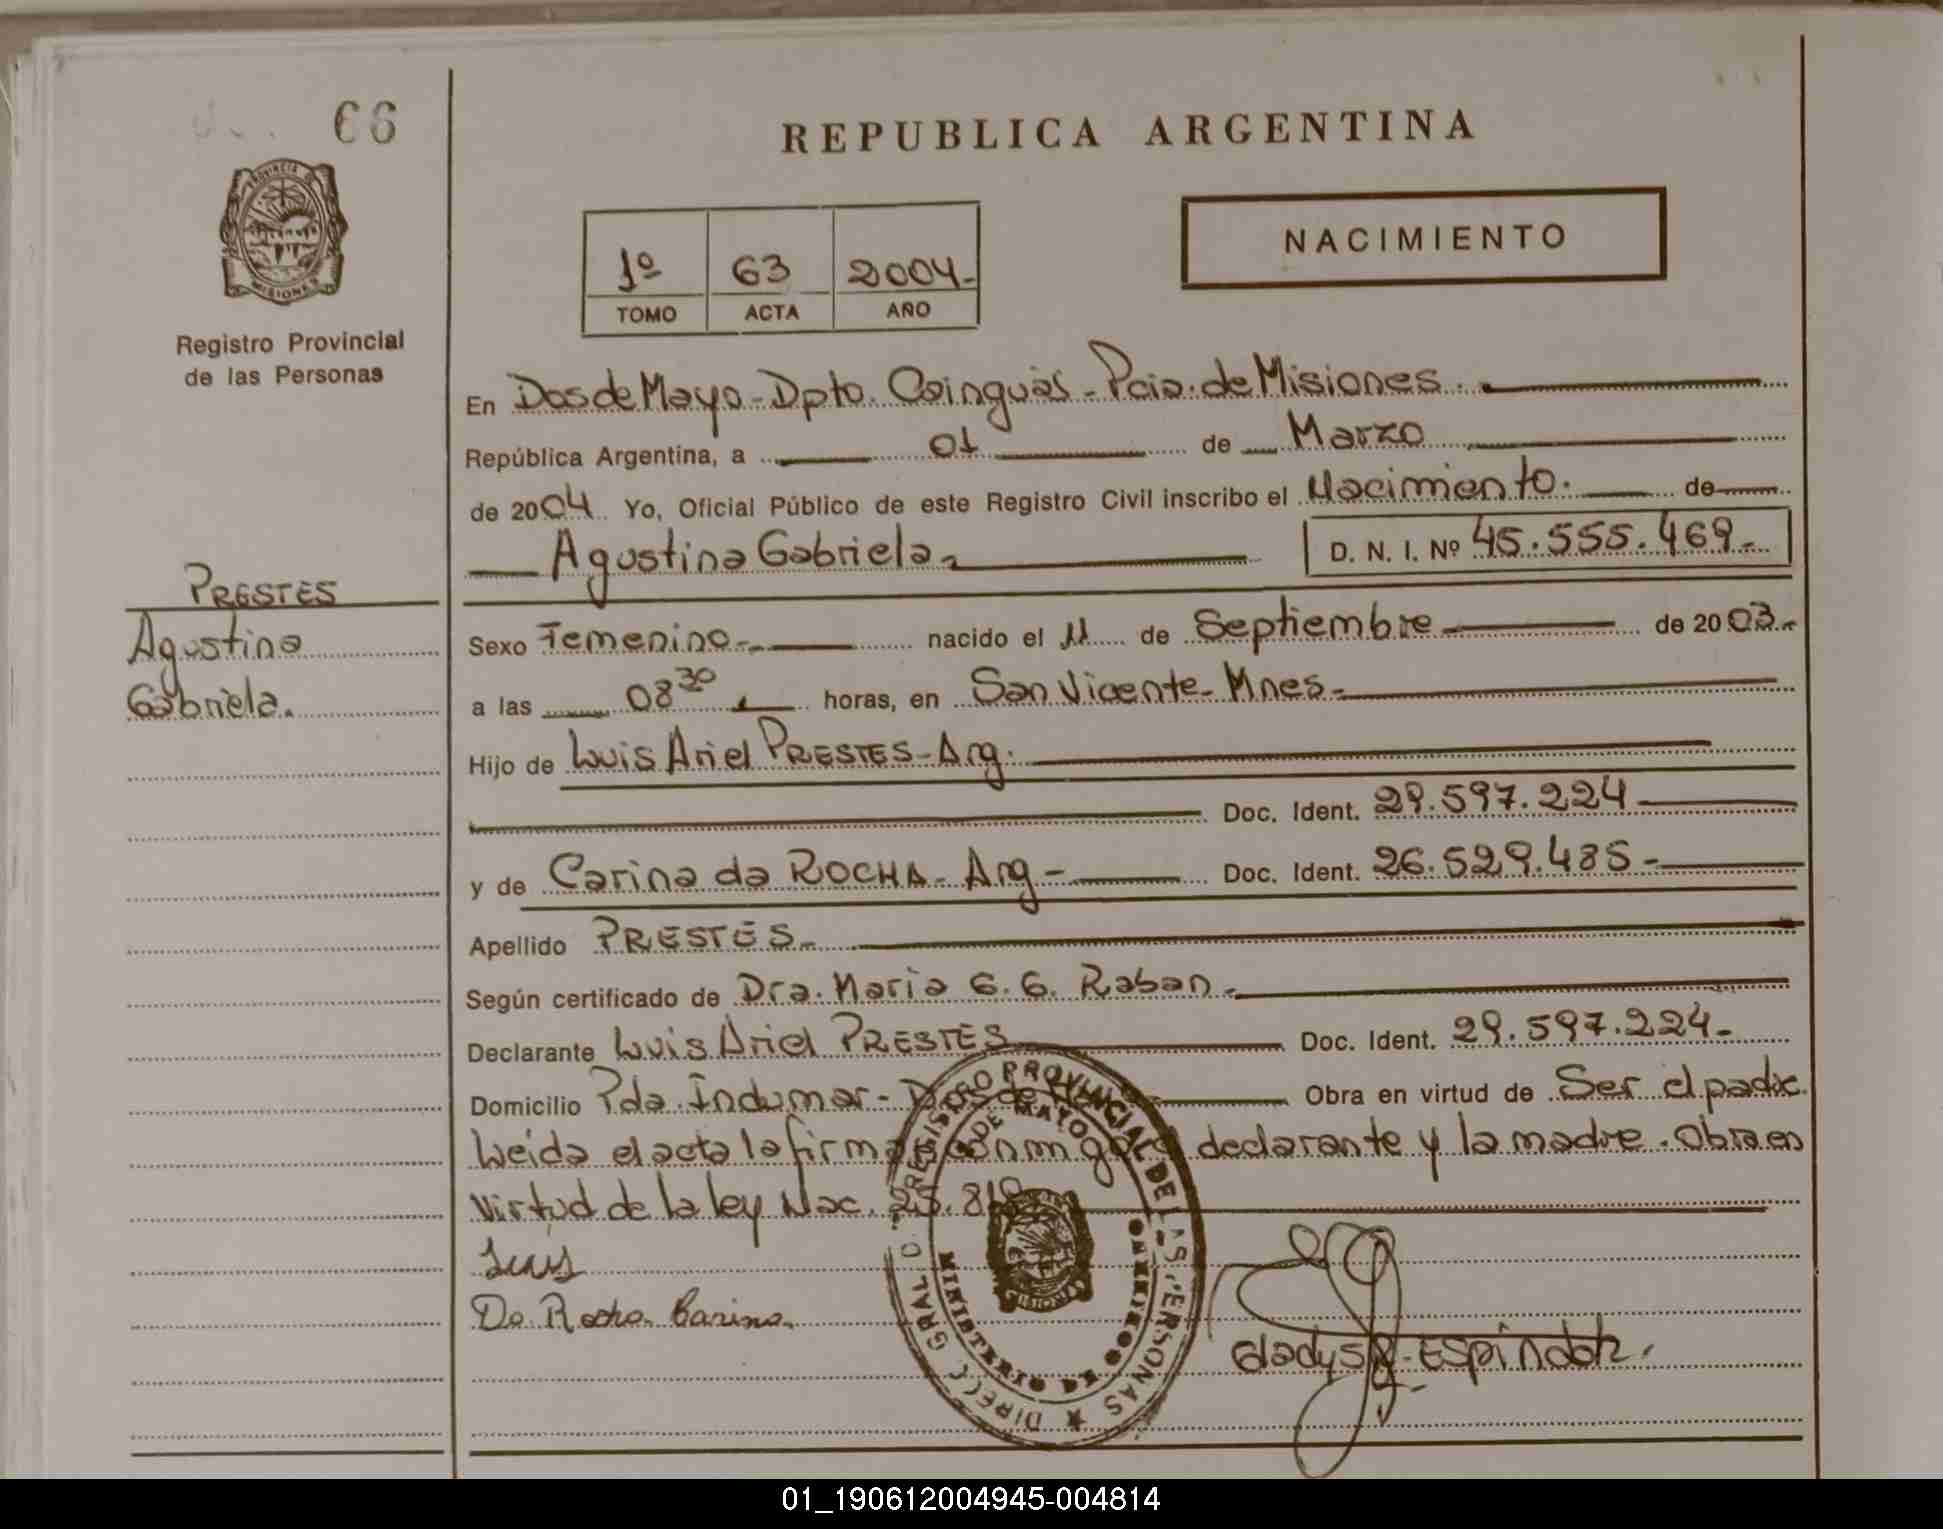 66
REPUBLICA ARGENTINA
NACIMIENTO
1º 63 2004-
TOMO ACTA AÑO
PROVINCIA DE
MISIONES
Registro Provincial
de las Personas
En Dos de Mayo - Dpto. Cainguás - Pcia. de Misiones.
República Argentina, a 01 de Marzo
de 2004 Yo, Oficial Público de este Registro Civil inscribo el Nacimiento. de
Agustina Gabriela. D. N. I. Nº 45.555.469-
PRESTES
Agustina
Gabriela.
Sexo Femenino- nacido el 11 de Septiembre de 2003-
a las 08 30 horas, en San Vicente- Mnes-
Hijo de Luis Ariel PRESTES- Arg.
Doc. Ident. 29.597.224
y de Carina da ROCHA- Arg- Doc. Ident. 26.529.485-
Apellido PRESTES-
Según certificado de Dra. Maria G. G. Raban-
Declarante Luis Ariel PRESTES Doc. Ident. 29.597.224-
Domicilio Pda. Indumar- Dos de Obra en virtud de Ser el padre.
Leida el acta la firma conmigo el declarante y la madre. Obra en
virtud de la ley Nac. 25.819
Luis
Da Rocha Carina.
Gladys Espindola.
DIREC. GRAL. D. REGISTRO PROVINCIAL DE LAS PERSONAS
DOS DE MAYO
MINISTERIO DE GOBIERNO
01_190612004945-004814